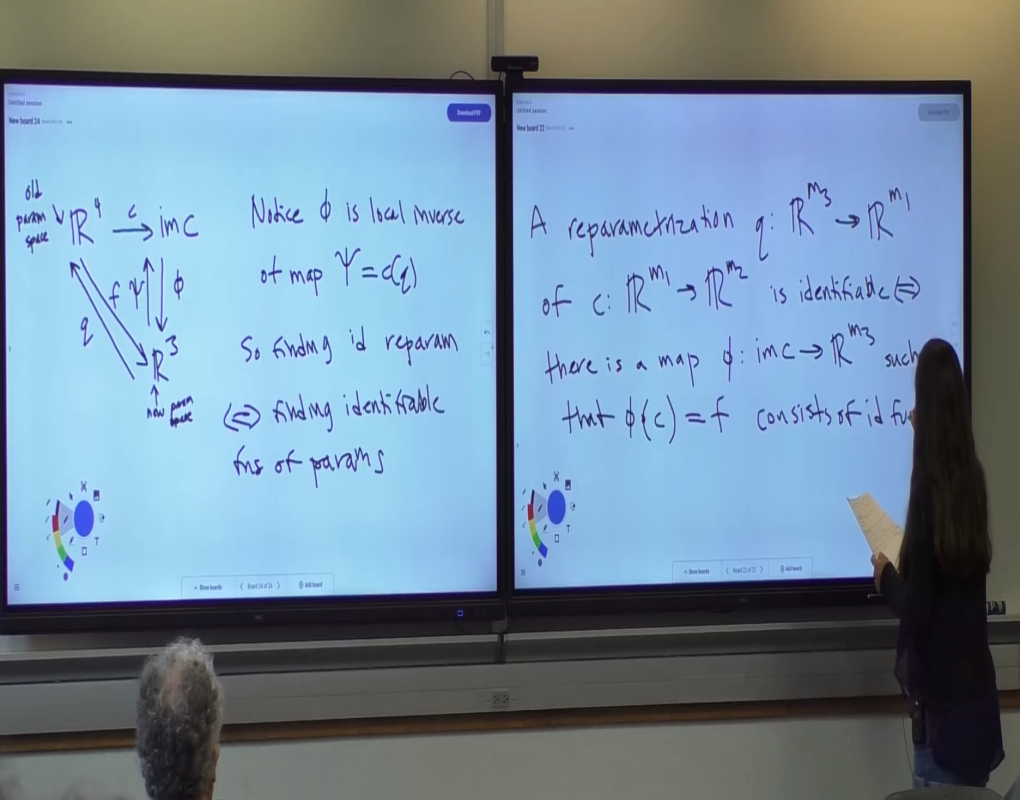 Untitled session
New board 24
Download PDF
old
param
space
ℝ⁴ c→ im c
f Ψ ϕ
q
ℝ³
new param
space
Notice ϕ is local inverse
of map Ψ = c(q)
So finding id reparam
⇔ finding identifiable
fns of params
Show boards
Board 24 of 24
Add board
Untitled session
New board 22
Download PDF
A reparametrization q: ℝ^m₃ → ℝ^m₁
of c: ℝ^m₁ → ℝ^m₂ is identifiable ⇔
there is a map ϕ: im c → ℝ^m₃ such
that ϕ(c) = f consists of id fu
T
T
Show boards
Board 22 of 22
Add board